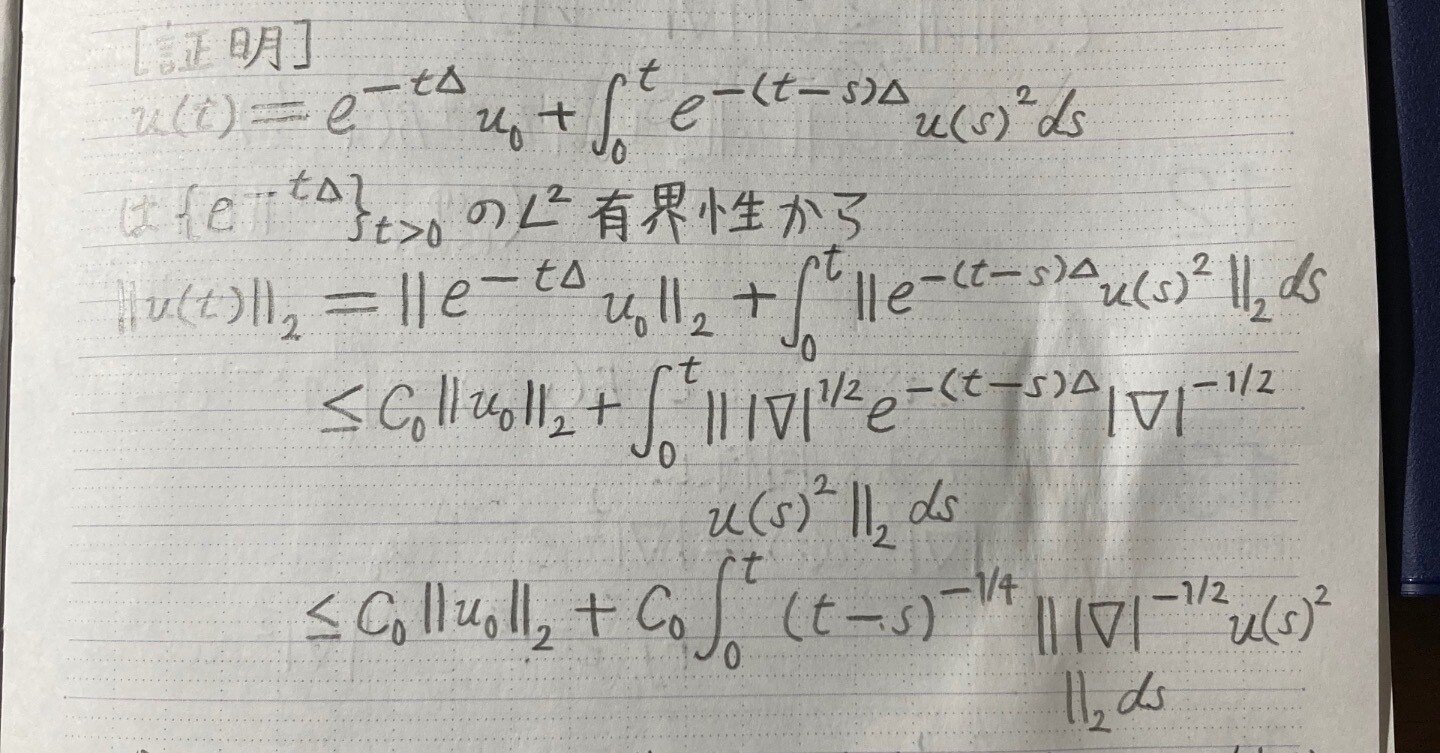 [証明]
u(t) = e^{-tΔ} u₀ + ∫₀^t e^{-(t-s)Δ} u(s)² ds
は {e^{-tΔ}}_{t>0} の L² 有界性から
‖u(t)‖₂ = ‖e^{-tΔ} u₀‖₂ + ∫₀^t ‖e^{-(t-s)Δ} u(s)²‖₂ ds
≤ C₀‖u₀‖₂ + ∫₀^t ‖|∇|^{1/2} e^{-(t-s)Δ} |∇|^{-1/2}
u(s)²‖₂ ds
≤ C₀‖u₀‖₂ + C₀ ∫₀^t (t-s)^{-1/4} ‖|∇|^{-1/2} u(s)²
‖₂ ds